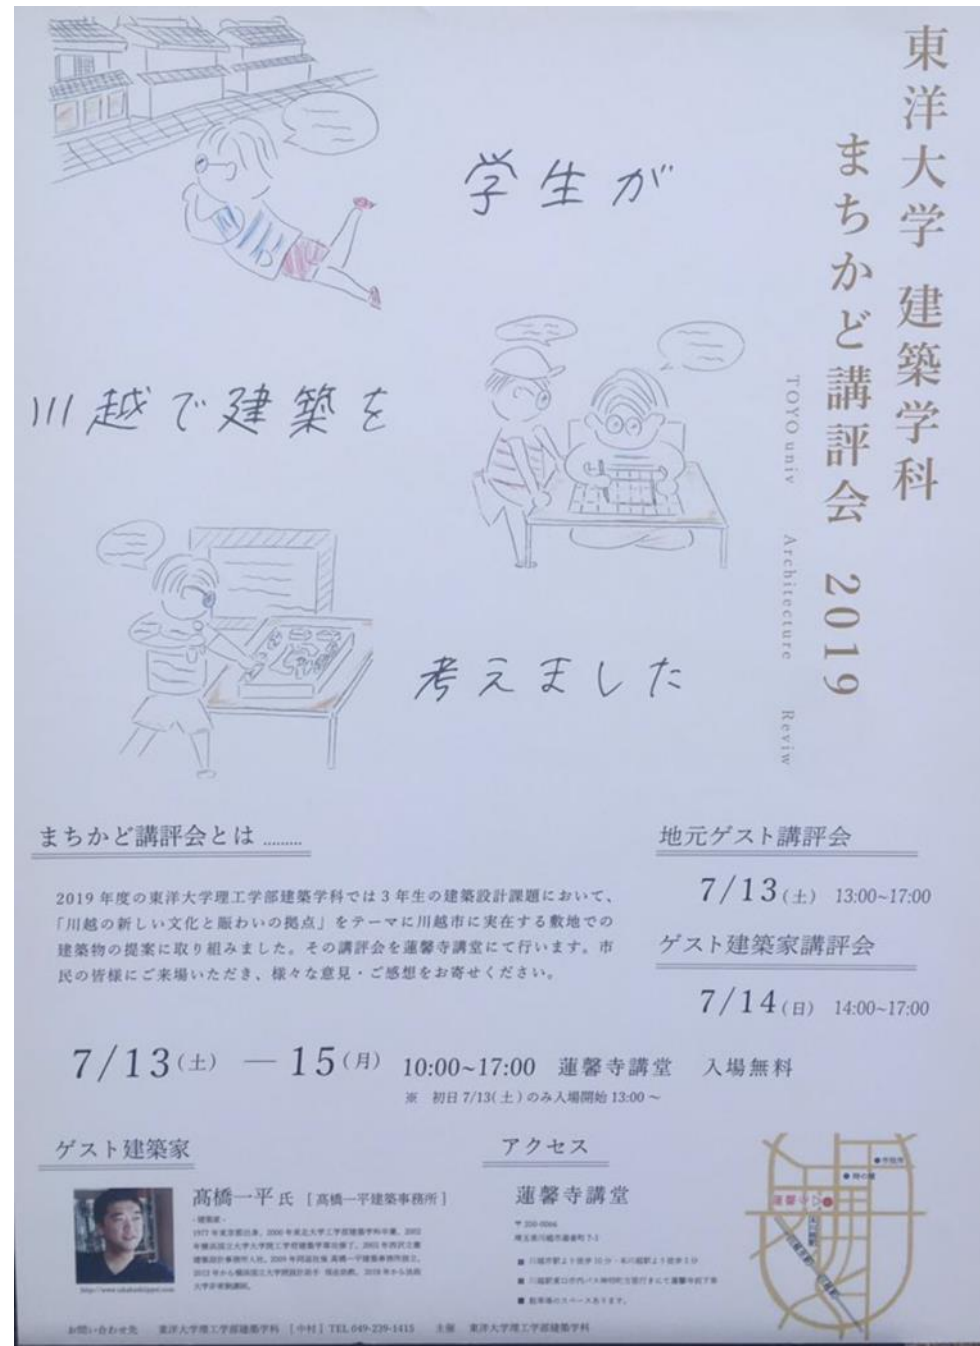 東洋大学 建築学科
まちかど講評会 2019
TOYO univ Architecture Reviw
学生が
川越で建築を
考えました
まちかど講評会とは .........
2019 年度の東洋大学理工学部建築学科では 3 年生の建築設計課題において、
「川越の新しい文化と賑わいの拠点」をテーマに川越市に実在する敷地での
建築物の提案に取り組みました。その講評会を蓮馨寺講堂にて行います。市
民の皆様にご来場いただき、様々な意見・ご感想をお寄せください。
地元ゲスト講評会
7/13(土) 13:00~17:00
ゲスト建築家講評会
7/14(日) 14:00~17:00
7/13(土) — 15(月) 10:00~17:00 蓮馨寺講堂 入場無料
※ 初日 7/13(土)のみ入場開始 13:00 ~
ゲスト建築家
髙橋一平 氏 [髙橋一平建築事務所]
- 建築家 -
アクセス
蓮馨寺講堂
〒350-0066
埼玉県川越市連雀町 7-1
■ 川越市駅より徒歩 10 分・本川越駅より徒歩 5 分
■ 駐車場のスペースあります。
●市役所
●時の鐘
蓮馨寺
お問い合わせ先 東洋大学理工学部建築学科 [中村] TEL 049-239-1415 主催 東洋大学理工学部建築学科